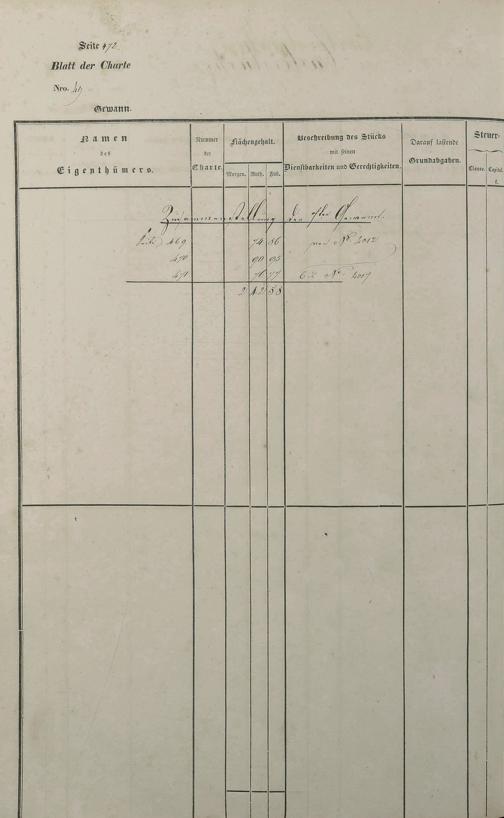 Seite 472.
Blatt der Charte
Nro. 49
Gewann.
Namen des Eigenthümers.
Nummer der Charte.
Flächengehalt.
Morgen. Ruth. Fuß.
Beschreibung des Stücks mit seinen Dienstbarkeiten und Gerechtigkeiten.
Darauf lastende Grundabgaben.
Steuer-
Classe. Capital.
f.
Zusammenstellung der Gewann.
Seite 469 74 86 von No. 2012
470 90 95
471 76 77 bis No. 2017
2 42 58